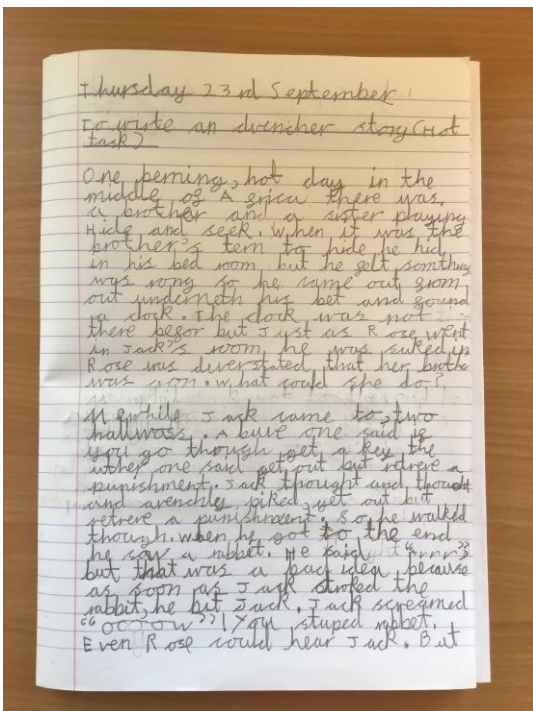 Thursday 23rd September
To write an avencher story (Hot
task)
One perning, hot day in the
middle of Africa there was
a brother and a sister playing
Hide and seek. When it was the
brother's tern to hide he hid
in his bed room but he felt somthing
was rong so he came out from
out underneth his bet and found
a clock. The clock was not
there befor but Just as Rose went
in Jack's room he was suked up
Rose was deverstated that her brothe
was gon. What could she do?
Mewhile Jack came to, two
hallwass. A buve one said if
you go though get a key the
uther one said get out but retreve a
punishment. Jack thought and thought
and avenchly piked, get out but
retreve a punishment. So he walked
though. When he got to the end
he saw a rabbet. He said "
but that was a bad idea because
as soon as Jack stroked the
rabbit, he bit Jack. Jack screamed
"ooooow"! You stuped rabbet.
Even Rose could hear Jack. But